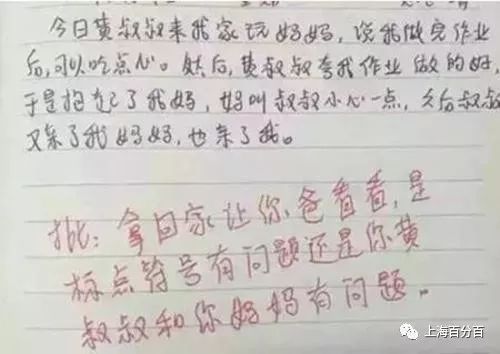 今日黄叔叔来我家玩妈妈，说我做完作业
后，可以吃点心。然后，黄叔叔夸我作业做的好，
于是抱起了我妈，妈叫叔叔小心一点，之后叔叔
又亲了我妈妈，也亲了我。
批：拿回家让你爸看看，是
标点符号有问题还是你黄
叔叔和你妈妈有问题。
上海百分百